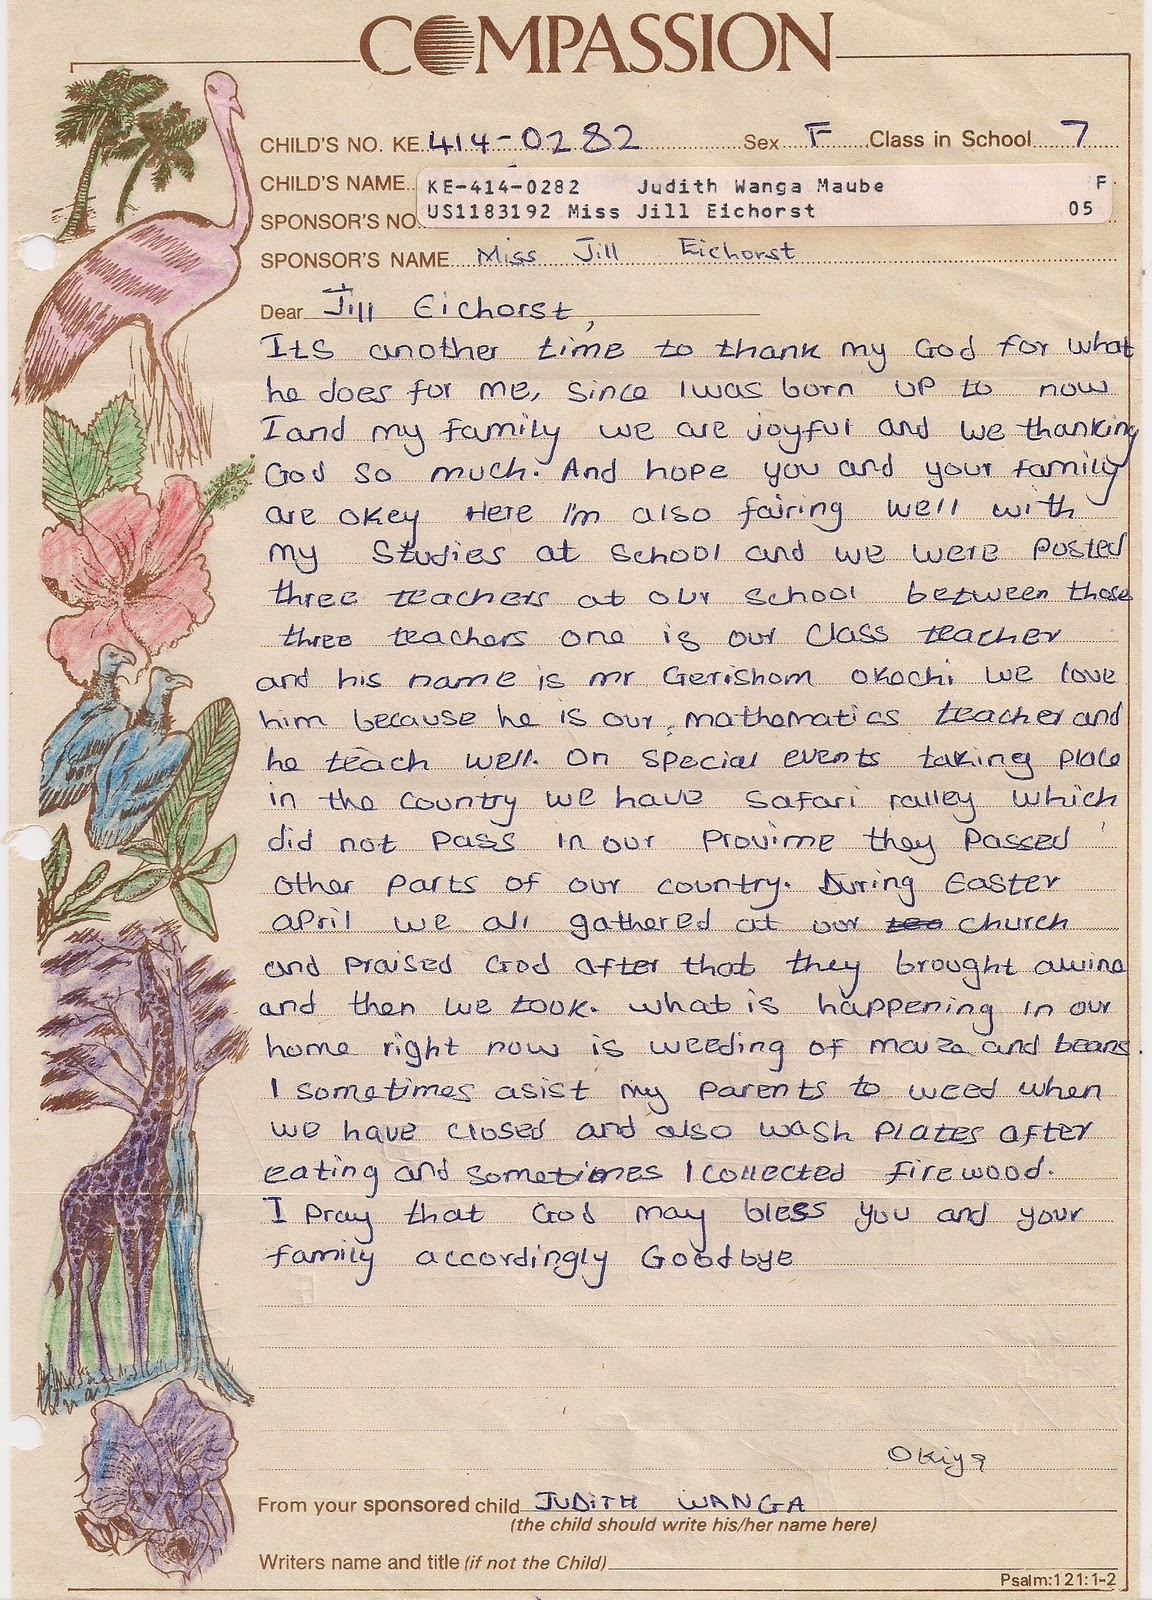 COMPASSION
CHILD'S NO. KE 414-0282 Sex F Class in School 7
CHILD'S NAME KE-414-0282 Judith Wanga Maube F
SPONSOR'S NO. US1183192 Miss Jill Eichorst 05
SPONSOR'S NAME Miss Jill Eichorst
Dear Jill Eichorst,
Its another time to thank my God for what
he does for me, since I was born up to now
I and my family we are joyful and we thanking
God so much. And hope you and your family
are okey Here I'm also fairing well with
my studies at school and we were posted
three teachers at our school between those
three teachers one is our class teacher
and his name is mr Gerishom Okochi we love
him because he is our mathematics teacher and
he teach well. On special events taking place
in the country we have safari ralley which
did not pass in our provime they passed
other parts of our country. During Easter
april we all gathered at our church
and praised God after that they brought awine
and then we took. What is happening in our
home right now is weeding of maize and beans.
I sometimes asist my parents to weed when
we have closed and also wash plates after
eating and sometimes I collected firewood.
I pray that God may bless you and your
family accordingly Goodbye
From your sponsored child JUDITH WANGA
(the child should write his/her name here)
Writers name and title (if not the Child)
Psalm:121:1-2